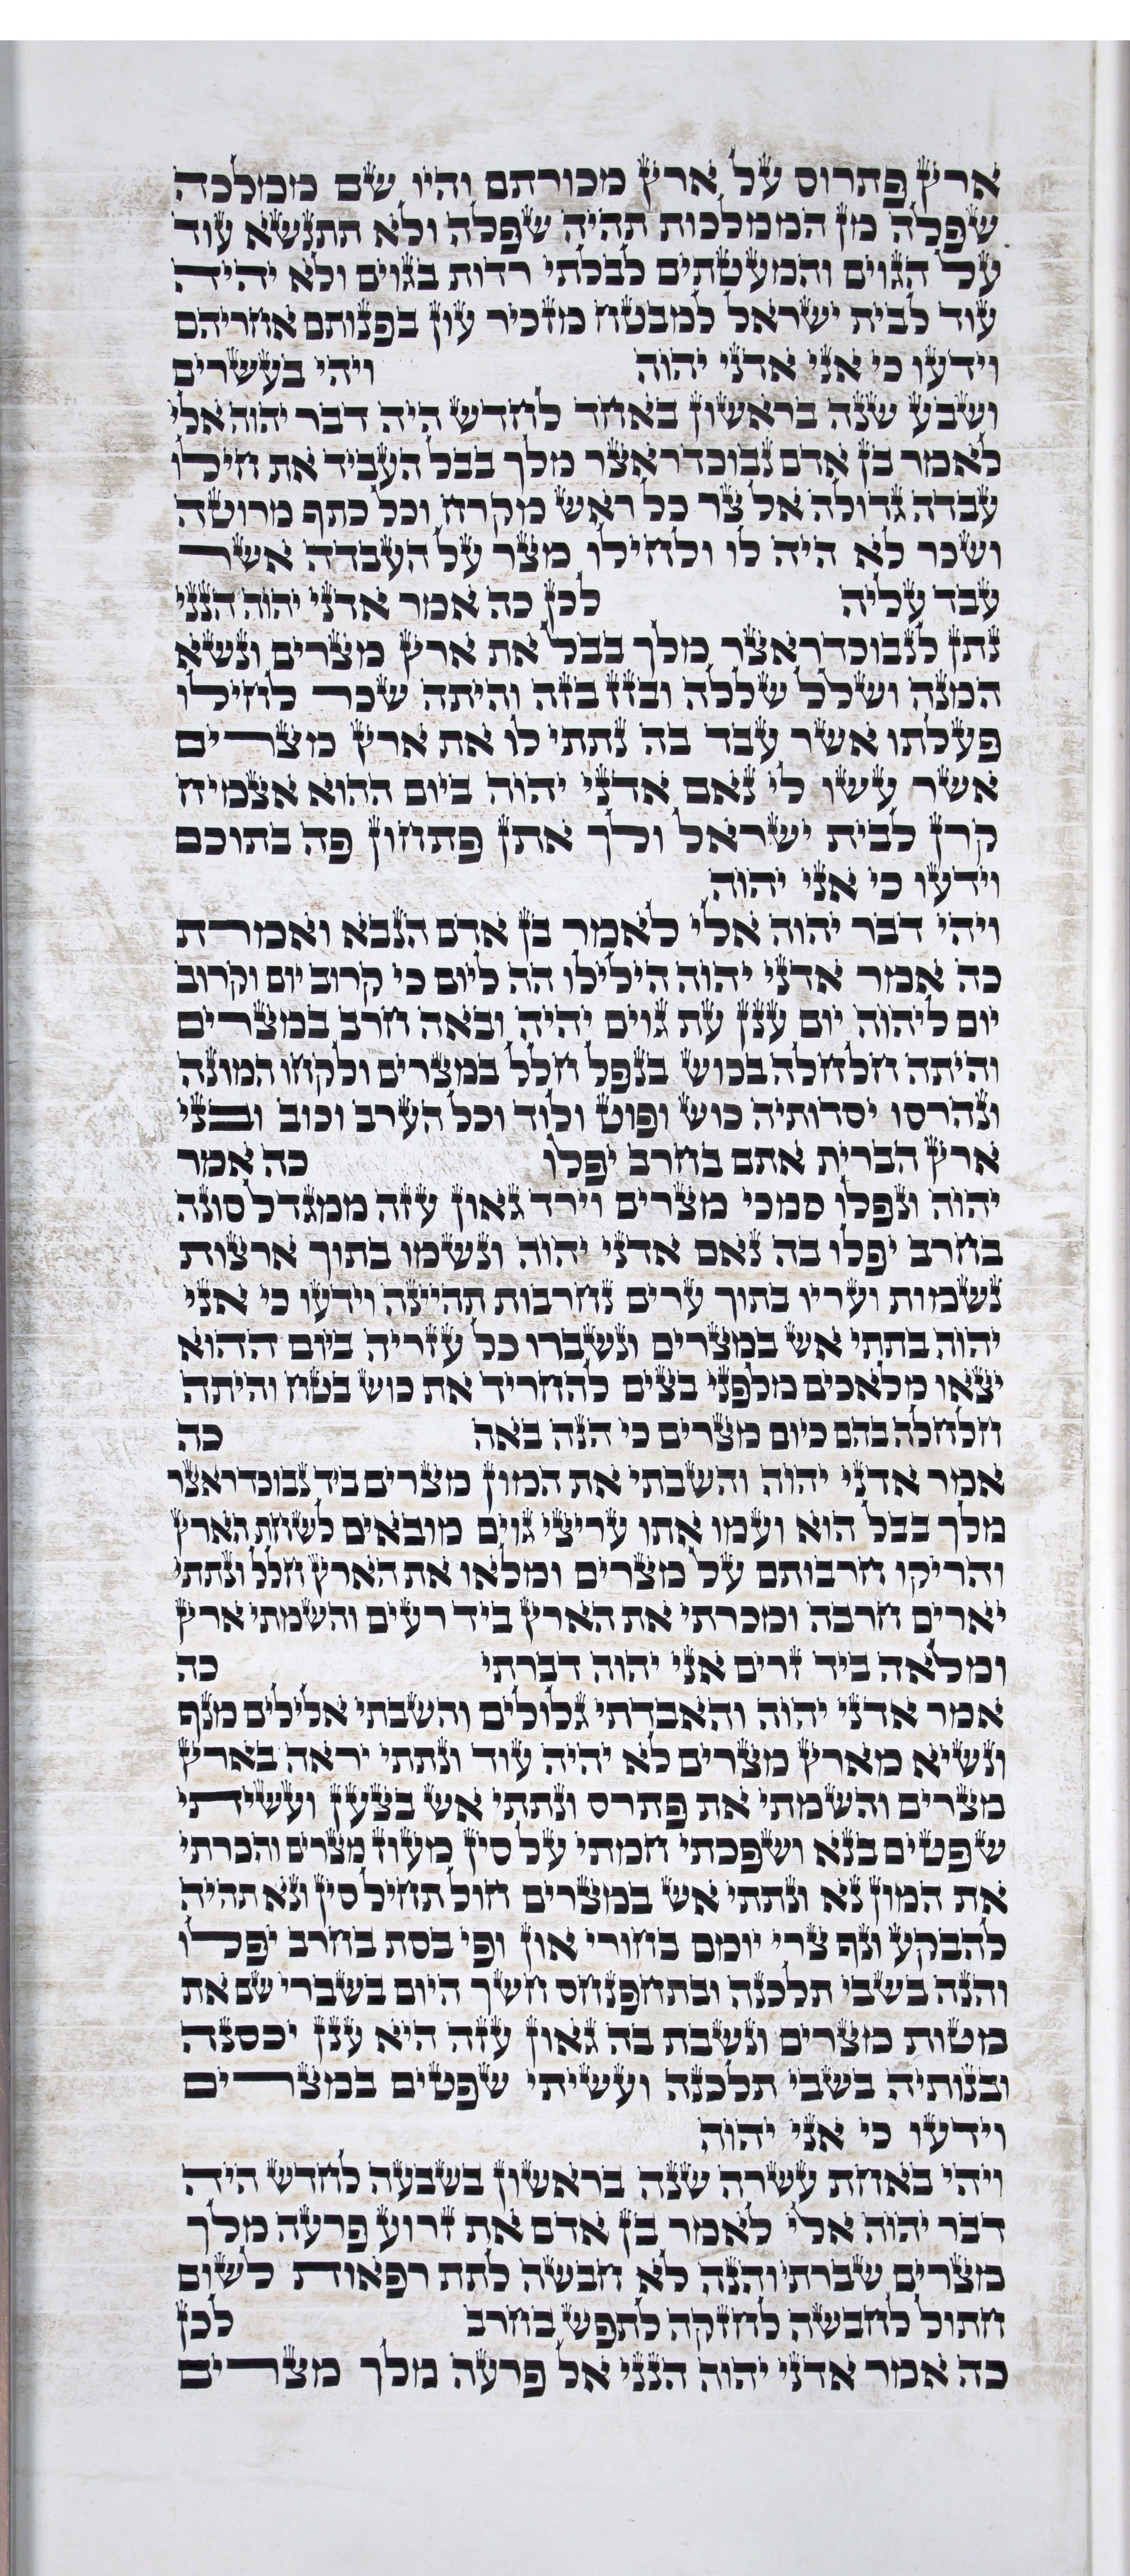 ארץ פתרוס על ארץ מכורתם והיו שם ממלכה
שפלה מן הממלכות תהיה שפלה ולא תתנשא עוד
על הגוים והמעטתים לבלתי רדות בגוים ולא יהיה
עוד לבית ישראל למבטח מזכיר עון בפנותם אחריהם
וידעו כי אני אדני יהוה ויהי בעשרים
ושבע שנה בראשון באחד לחדש היה דבר יהוה אלי
לאמר בן אדם נבוכדראצר מלך בבל העביד את חילו
עבדה גדולה אל צר כל ראש מקרח וכל כתף מרוטה
ושכר לא היה לו ולחילו מצר על העבדה אשר
עבד עליה לכן כה אמר אדני יהוה הנני
נתן לנבוכדראצר מלך בבל את ארץ מצרים ונשא
המנה ושלל שללה ובזז בזה והיתה שכר לחילו
פעלתו אשר עבד בה נתתי לו את ארץ מצרים
אשר עשו לי נאם אדני יהוה ביום ההוא אצמיח
קרן לבית ישראל ולך אתן פתחון פה בתוכם
וידעו כי אני יהוה
ויהי דבר יהוה אלי לאמר בן אדם הנבא ואמרת
כה אמר אדני יהוה הילילו הה ליום כי קרוב יום וקרוב
יום ליהוה יום ענן עת גוים יהיה ובאה חרב במצרים
והיתה חלחלה בכוש בנפל חלל במצרים ולקחו המונה
ונהרסו יסדותיה כוש ופוט ולוד וכל הערב וכוב ובני
ארץ הברית אתם בחרב יפלו כה אמר
יהוה ונפלו סמכי מצרים וירד גאון עזה ממגדל סונה
בחרב יפלו בה נאם אדני יהוה ונשמו בתוך ארצות
נשמות ועריו בתוך ערים נחרבות תהיינה וידעו כי אני
יהוה בתתי אש במצרים ונשברו כל עזריה ביום ההוא
יצאו מלאכים מלפני בצים להחריד את כוש בטח והיתה
חלחלה בהם כיום מצרים כי הנה באה כה
אמר אדני יהוה והשבתי את המון מצרים ביד נבוכדראצר
מלך בבל הוא ועמו אתו עריצי גוים מובאים לשחת הארץ
והריקו חרבותם על מצרים ומלאו את הארץ חלל ונתתי
יארים חרבה ומכרתי את הארץ ביד רעים והשמתי ארץ
ומלאה ביד זרים אני יהוה דברתי כה
אמר אדני יהוה והאבדתי גלולים והשבתי אלילים מנף
ונשיא מארץ מצרים לא יהיה עוד ונתתי יראה בארץ
מצרים והשמתי את פתרס ונתתי אש בצען ועשיתי
שפטים בנא ושפכתי חמתי על סין מעוז מצרים והכרתי
את המון נא ונתתי אש במצרים חול תחיל סין ונא תהיה
להבקע ונף צרי יומם בחורי און ופי בסת בחרב יפלו
והנה בשבי תלכנה ובתחפנחס חשך היום בשברי שם את
מטות מצרים ונשבת בה גאון עזה היא ענן יכסנה
ובנותיה בשבי תלכנה ועשיתי שפטים במצרים
וידעו כי אני יהוה
ויהי באחת עשרה שנה בראשון בשבעה לחדש היה
דבר יהוה אלי לאמר בן אדם את זרוע פרעה מלך
מצרים שברתי והנה לא חבשה לתת רפאות לשום
חתול לחבשה לחזקה לתפש בחרב לכן
כה אמר אדני יהוה הנני אל פרעה מלך מצרים